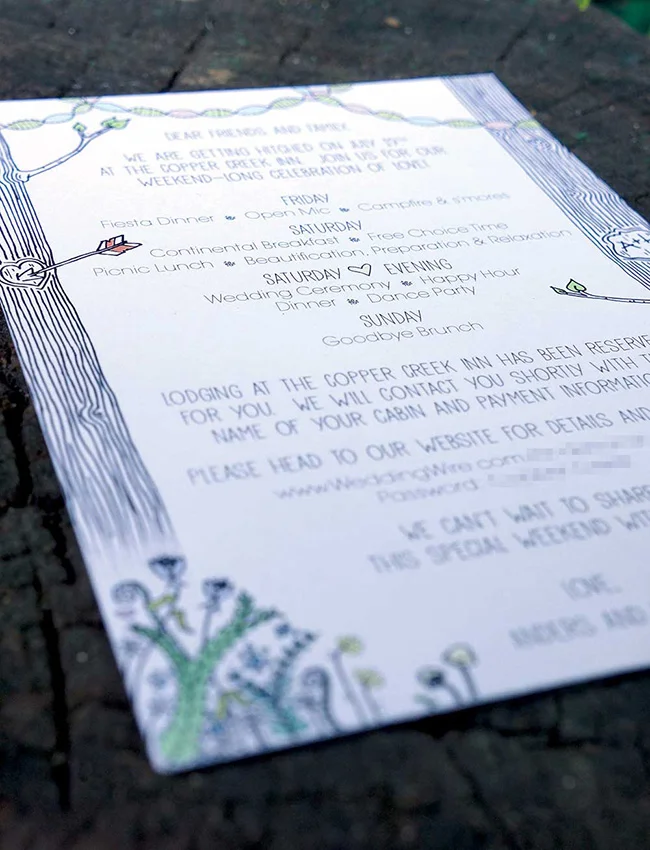 DEAR FRIENDS AND FAMILY,
WE ARE GETTING HITCHED ON JULY 19TH
AT THE COPPER CREEK INN. JOIN US FOR OUR
WEEKEND-LONG CELEBRATION OF LOVE!
FRIDAY
Fiesta Dinner Open Mic Campfire & s'mores
SATURDAY
Continental Breakfast Free Choice Time
Picnic Lunch Beautification, Preparation & Relaxation
SATURDAY EVENING
Wedding Ceremony Happy Hour
Dinner Dance Party
SUNDAY
Goodbye Brunch
LODGING AT THE COPPER CREEK INN HAS BEEN RESERVE
FOR YOU. WE WILL CONTACT YOU SHORTLY WITH
NAME OF YOUR CABIN AND PAYMENT INFORMATIO
PLEASE HEAD TO OUR WEBSITE FOR DETAILS AND
www.WeddingWire.com
Password:
WE CAN'T WAIT TO SHARE
THIS SPECIAL WEEKEND WIT
LOVE,
ANDERS AND